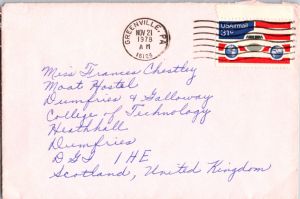 GREENVILLE, PA
NOV 21
1978
AM
16125
USAirmail
31c
Miss Frances Chestley
Moat Hostel
Dumfries & Galloway
College of Technology
Heathhall
Dumfries
DG1 1HE
Scotland, United Kingdom